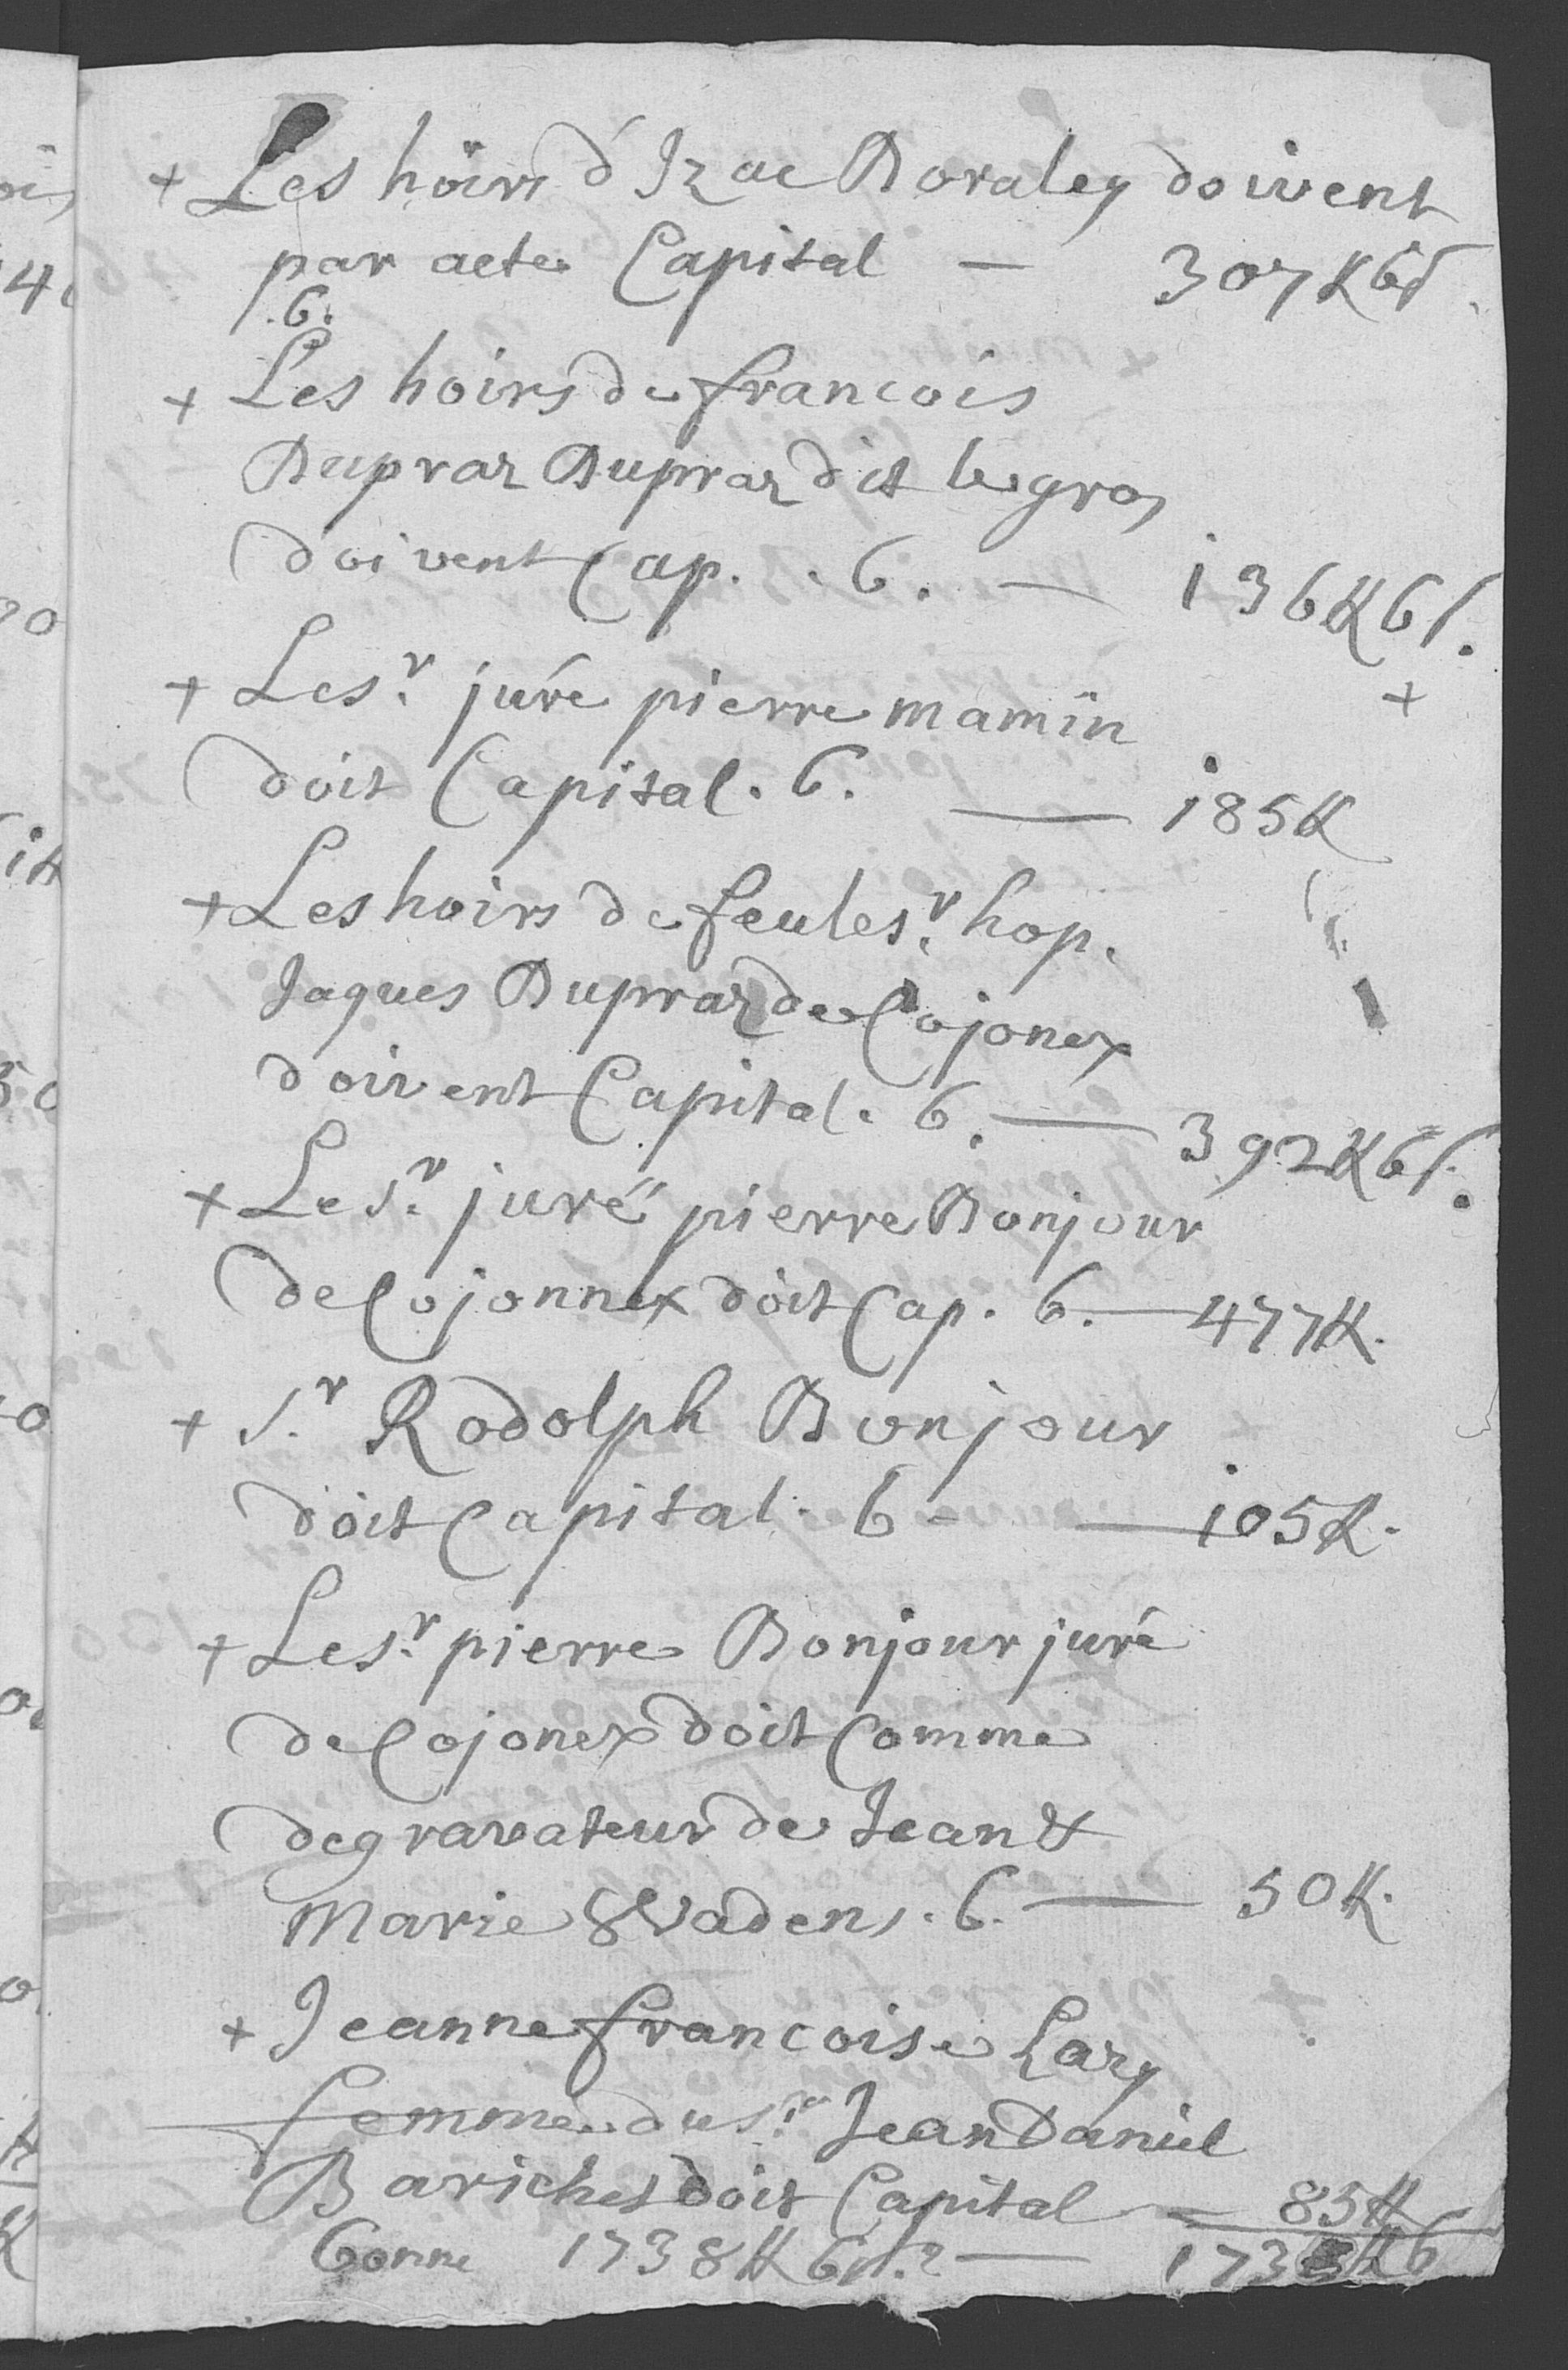 + Les hoirs d'Izac Boraley doivent
par acte Capital — 307 ℔ 6 s.
.6.
+ Les hoirs de francois
Dupraz Dupraz dit le gros
doivent Cap. . 6. — 136 ℔ 6 s.
+ Le Sr. juré pierre mamin +
doit Capital . 6. — 185 ℔
+ Les hoirs de feu le sr. hop.
Jaques Dupraz de Cojonex
doivent Capital . 6. — 392 ℔ 6 s.
+ Le Sr. juré pierre Bonjour
de Cojonnex doit Cap. 6. — 477 ℔.
+ Sr. Rodolph Bonjour
doit Capital . 6 - — 105 ℔.
+ Le Sr. pierre Bonjour juré
de Cojonex doit Comme
degravateur de Jean &
Marie Wadens . 6. — 50 ℔.
+ Jeanne francoise Lary
femme du sr. Jean Daniel
Bariches doit Capital — 85 ℔
Bonne 1738 ℔ 6 s. — 1738 ℔ 6